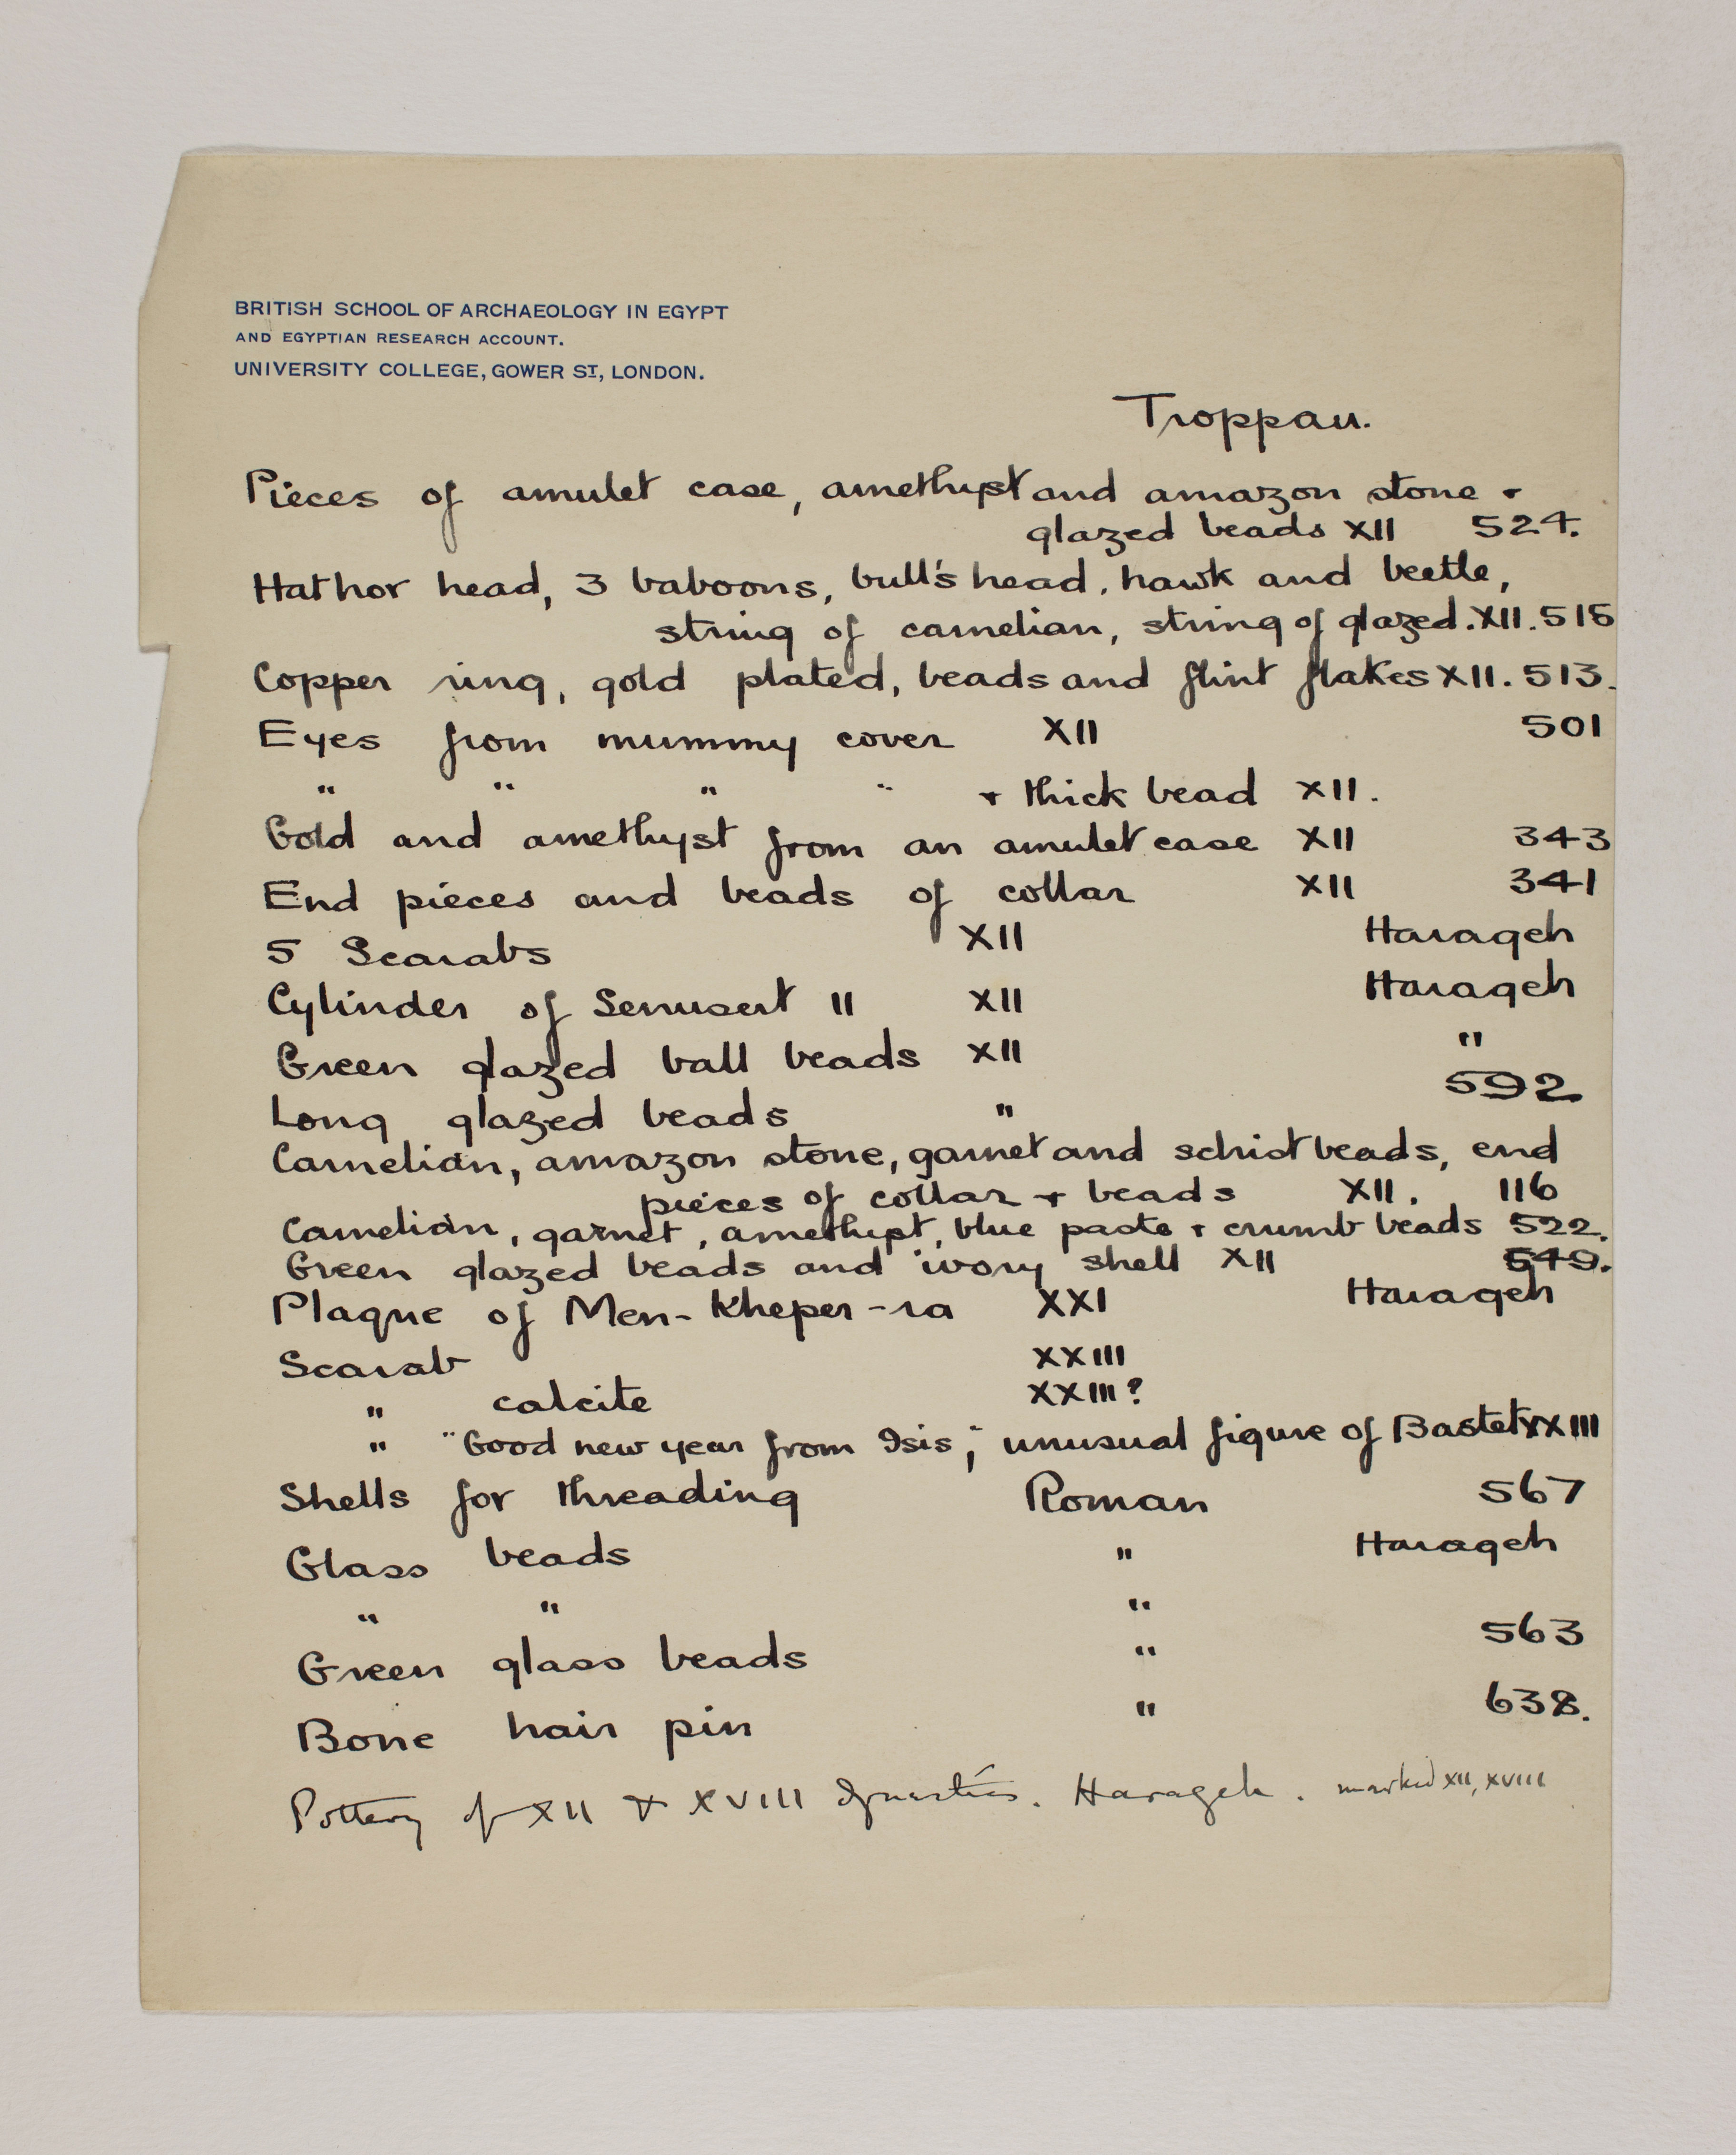 BRITISH SCHOOL OF ARCHAEOLOGY IN EGYPT
AND EGYPTIAN RESEARCH ACCOUNT.
UNIVERSITY COLLEGE, GOWER ST, LONDON.
Troppau.
Pieces of amulet case, amethyst and amazon stone +
glazed beads XII 524.
Hathor head, 3 baboons, bull's head, hawk and beetle,
string of carnelian, string of glazed. XII. 515
Copper ring, gold plated, beads and flint flakes XII. 513.
Eyes from mummy cover XII 501
" " " " + thick bead XII.
Gold and amethyst from an amulet case XII 343
End pieces and beads of collar XII 341
5 Scarabs XII Harageh
Cylinder of Senusert II XII Harageh
Green glazed ball beads XII "
Long glazed beads " 592
Carnelian, amazon stone, garnet and schist beads, end
pieces of collar + beads XII. 116
Carnelian, garnet, amethyst, blue paste + crumb beads 522.
Green glazed beads and ivory shell XII 549.
Plaque of Men-Kheper-ra XXI Harageh
Scarab XXIII
" calcite XXIII?
" "Good new year from Isis," unusual figure of Bastet XXIII
Shells for threading Roman 567
Glass beads " Harageh
" " "
Green glass beads " 563
Bone hair pin " 638.
Pottery of XII & XVIII Dynasties. Harageh. marked XII, XVIII